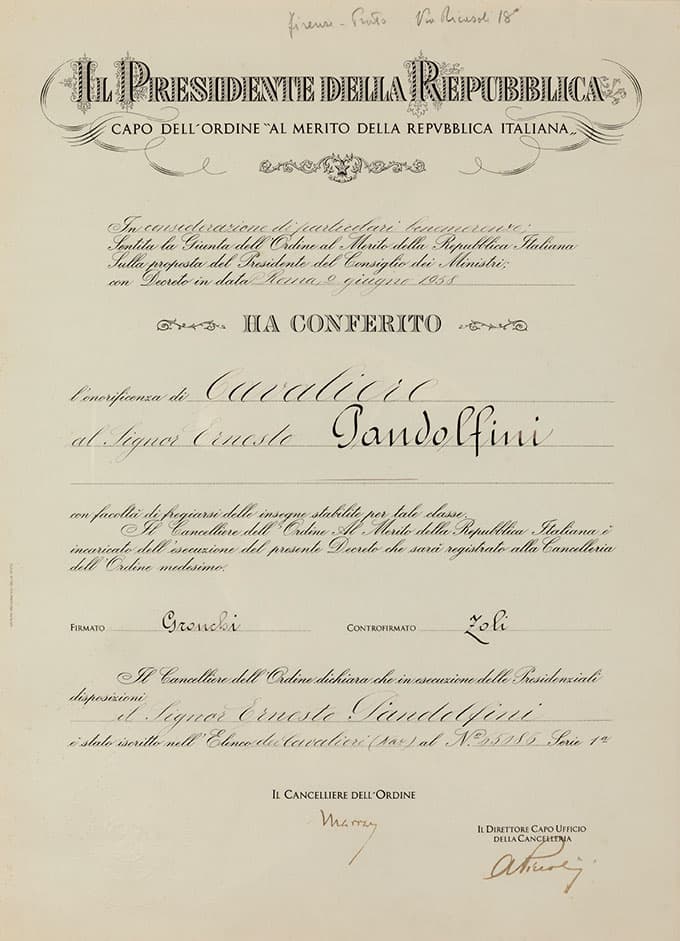 Firenze - Prato Via Ricasoli 18
IL PRESIDENTE DELLA REPUBBLICA
CAPO DELL'ORDINE "AL MERITO DELLA REPVBBLICA ITALIANA„
In considerazione di particolari benemerenze;
Sentita la Giunta dell'Ordine al Merito della Repubblica Italiana
Sulla proposta del Presidente del Consiglio dei Ministri;
con Decreto in data Roma, 2 giugno 1958
HA CONFERITO
l'onorificenza di Cavaliere
al Signor Ernesto Pandolfini
con facoltà di fregiarsi delle insegne stabilite per tale classe.
Il Cancelliere dell'Ordine Al Merito della Repubblica Italiana è
incaricato dell'esecuzione del presente Decreto che sarà registrato alla Cancelleria
dell'Ordine medesimo.
FIRMATO Gronchi CONTROFIRMATO Zoli
Il Cancelliere dell'Ordine dichiara che in esecuzione delle Presidenziali
disposizioni
il Signor Ernesto Pandolfini
è stato iscritto nell'Elenco dei Cavalieri al N.º Serie 1ª
IL CANCELLIERE DELL'ORDINE
IL DIRETTORE CAPO UFFICIO
DELLA CANCELLERIA